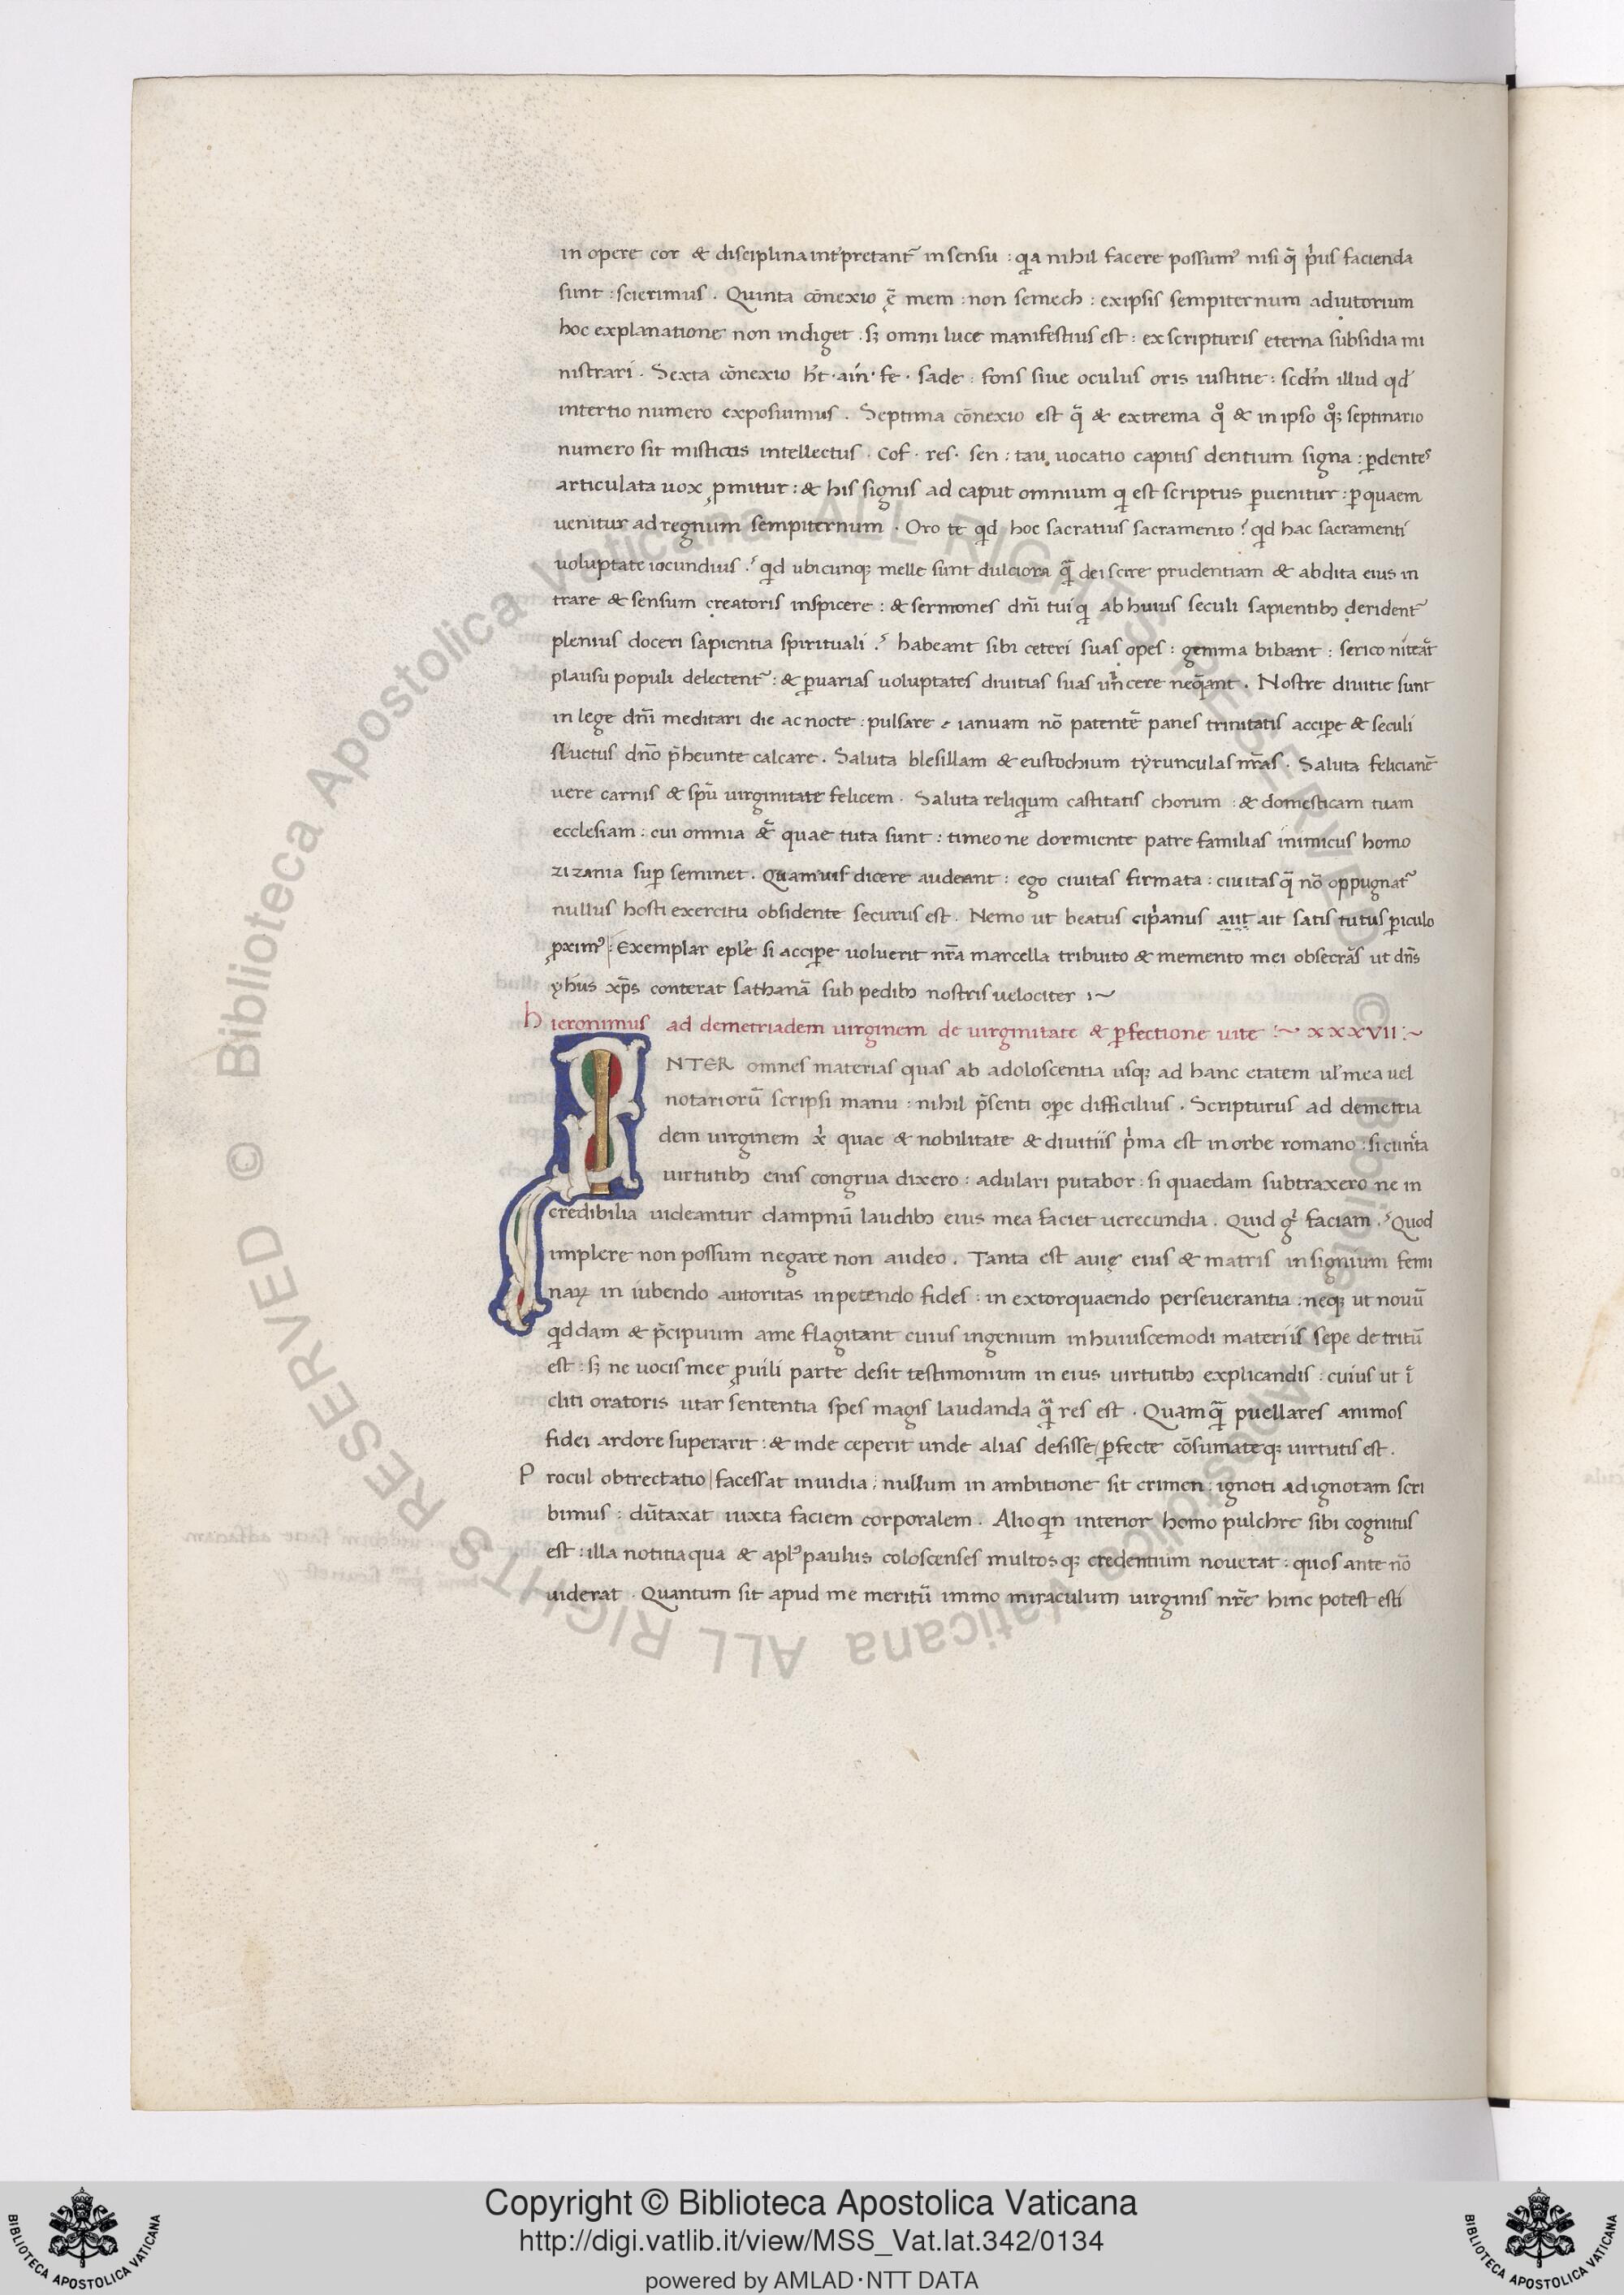 in opere cor & disciplina int̓pretant᷑ in sensu : qa nihil facere possumꝰ nisi q̄ pͥus facienda
sunt : scierimus . Quinta cōnexio ē mem : non semech : ex ipsis sempiternum adiutorium
hoc explanatione non indiget . sꝫ omni luce manifestius est : ex scripturis eterna subsidia mi
nistrari . Sexta cōnexio ht̄ · ain · fe · sade : fons siue oculus oris iustitie : scd̄m illud qd̓
in tertio numero exposuimus . Septima cōnexio est q̄ & extrema qͦ & in ipso qͦꝫ septinario
numero sit misticus intellectus . Cof · res · sen : tau uocatio capitis dentium signa : ꝑ dentes
articulata uox ꝓmitur : & his signis ad caput omnium qi est scriptus ꝑuenitur : ꝑ quaem
uenitur ad regnum sempiternum . Oro te qd hoc sacratius sacramento ? qd hac sacramenti
uoluptate iocundius ? qd ubicunqꝫ melle sunt dulciora qᷓ dei scire prudentiam & abdita eius in
trare & sensum creatoris inspicere : & sermones dn̄i tui qi ab huius seculi sapientibꝫ derident᷑
plenius doceri sapientia spirituali ? habeant sibi ceteri suas opes : gemma bibant : serico niteāt
plausu populi delectent᷑ : & ꝑ uarias uoluptates diuitias suas uincere neqͣant . Nostre diuitie sunt
in lege dn̄i meditari die ac nocte : pulsare ianuam nō patentē panes trinitatis acciꝑe & seculi
fluctus dn̄o p̄heunte calcare . Saluta blesillam & eustochium tyrunculas nr̄as . Saluta felicianē
uere carnis & spū uirginitate felicem . Saluta reliqum castitatis chorum : & domesticam tuam
ecclesiam : cui omnia & quae tuta sunt : timeo ne dormiente patre familias inimicus homo
zizania suꝑ seminet . Quamuis dicere audeant : ego ciuitas firmata : ciuitas q̄ nō oppugnat᷑
nullus hosti exercitu obsidente securus est . Nemo ut beatus cipͥanus aut ait satis tutus ꝑiculo
ꝓximꝰ : Exemplar epl̄e si acciꝑe uoluerit nr̄a marcella tribuito & memento mei obsecrās ut dn̄s
yhūs xp̄s conterat sathanā sub pedibꝫ nostris uelociter :~
Hieronimus ad demetriadem uirginem de uirginitate & ꝑfectione uite :~ xxxvii :~
INTER omnes materias quas ab adoloscentia usqꝫ ad hanc etatem ul̓ mea uel
notariorū scripsi manu : nihil p̄senti oꝑe difficilius . Scripturus ad demetria
dem uirginem xͥ quae & nobilitate & diuitiis pͥma est in orbe romano : si cuncta
uirtutibꝫ eius congrua dixero : adulari putabor : si quaedam subtraxero ne in
credibilia uideantur dampnū laudibꝫ eius mea faciet uerecundia . Quid gͥ faciam ? Quod
implere non possum negare non audeo . Tanta est auię eius & matris insignium femi
naꝝ in iubendo autoritas in petendo fides : in extorquaendo perseuerantia . neqꝫ ut nouū
qd dam & p̄cipuum a me flagitant cuius ingenium in huiuscemodi materiis sepe detritū
est : sꝫ ne uocis mee ꝓ uili parte desit testimonium in eius uirtutibꝫ explicandis : cuius ut ī
cliti oratoris utar sententia spes magis laudanda qᷓ res est . Quamqᷓ puellares animos
fidei ardore superarit : & inde ceperit unde alias desisse ꝑfecte cōsumateqꝫ uirtutis est .
Procul obtrectatio | facessat inuidia : nullum in ambitione sit crimen : ignoti ad ignotam scri
bimus : dūtaxat iuxta faciem corporalem . Alioqin interior homo pulchre sibi cognitus
est : illa notitia qua & apl̄ꝰ paulus coloscenses multosqꝫ credentium nouerat : quos ante nō
uiderat . Quantum sit apud me meritū immo miraculum uirginis nr̄e hinc potest esti
© Biblioteca Apostolica Vaticana ALL RIGHTS RESERVED
© Biblioteca Apostolica Vaticana ALL RIGHTS RESERVED
BIBLIOTECA APOSTOLICA VATICANA
Copyright © Biblioteca Apostolica Vaticana
http://digi.vatlib.it/view/MSS_Vat.lat.342/0134
powered by AMLAD·NTT DATA
BIBLIOTECA APOSTOLICA VATICANA